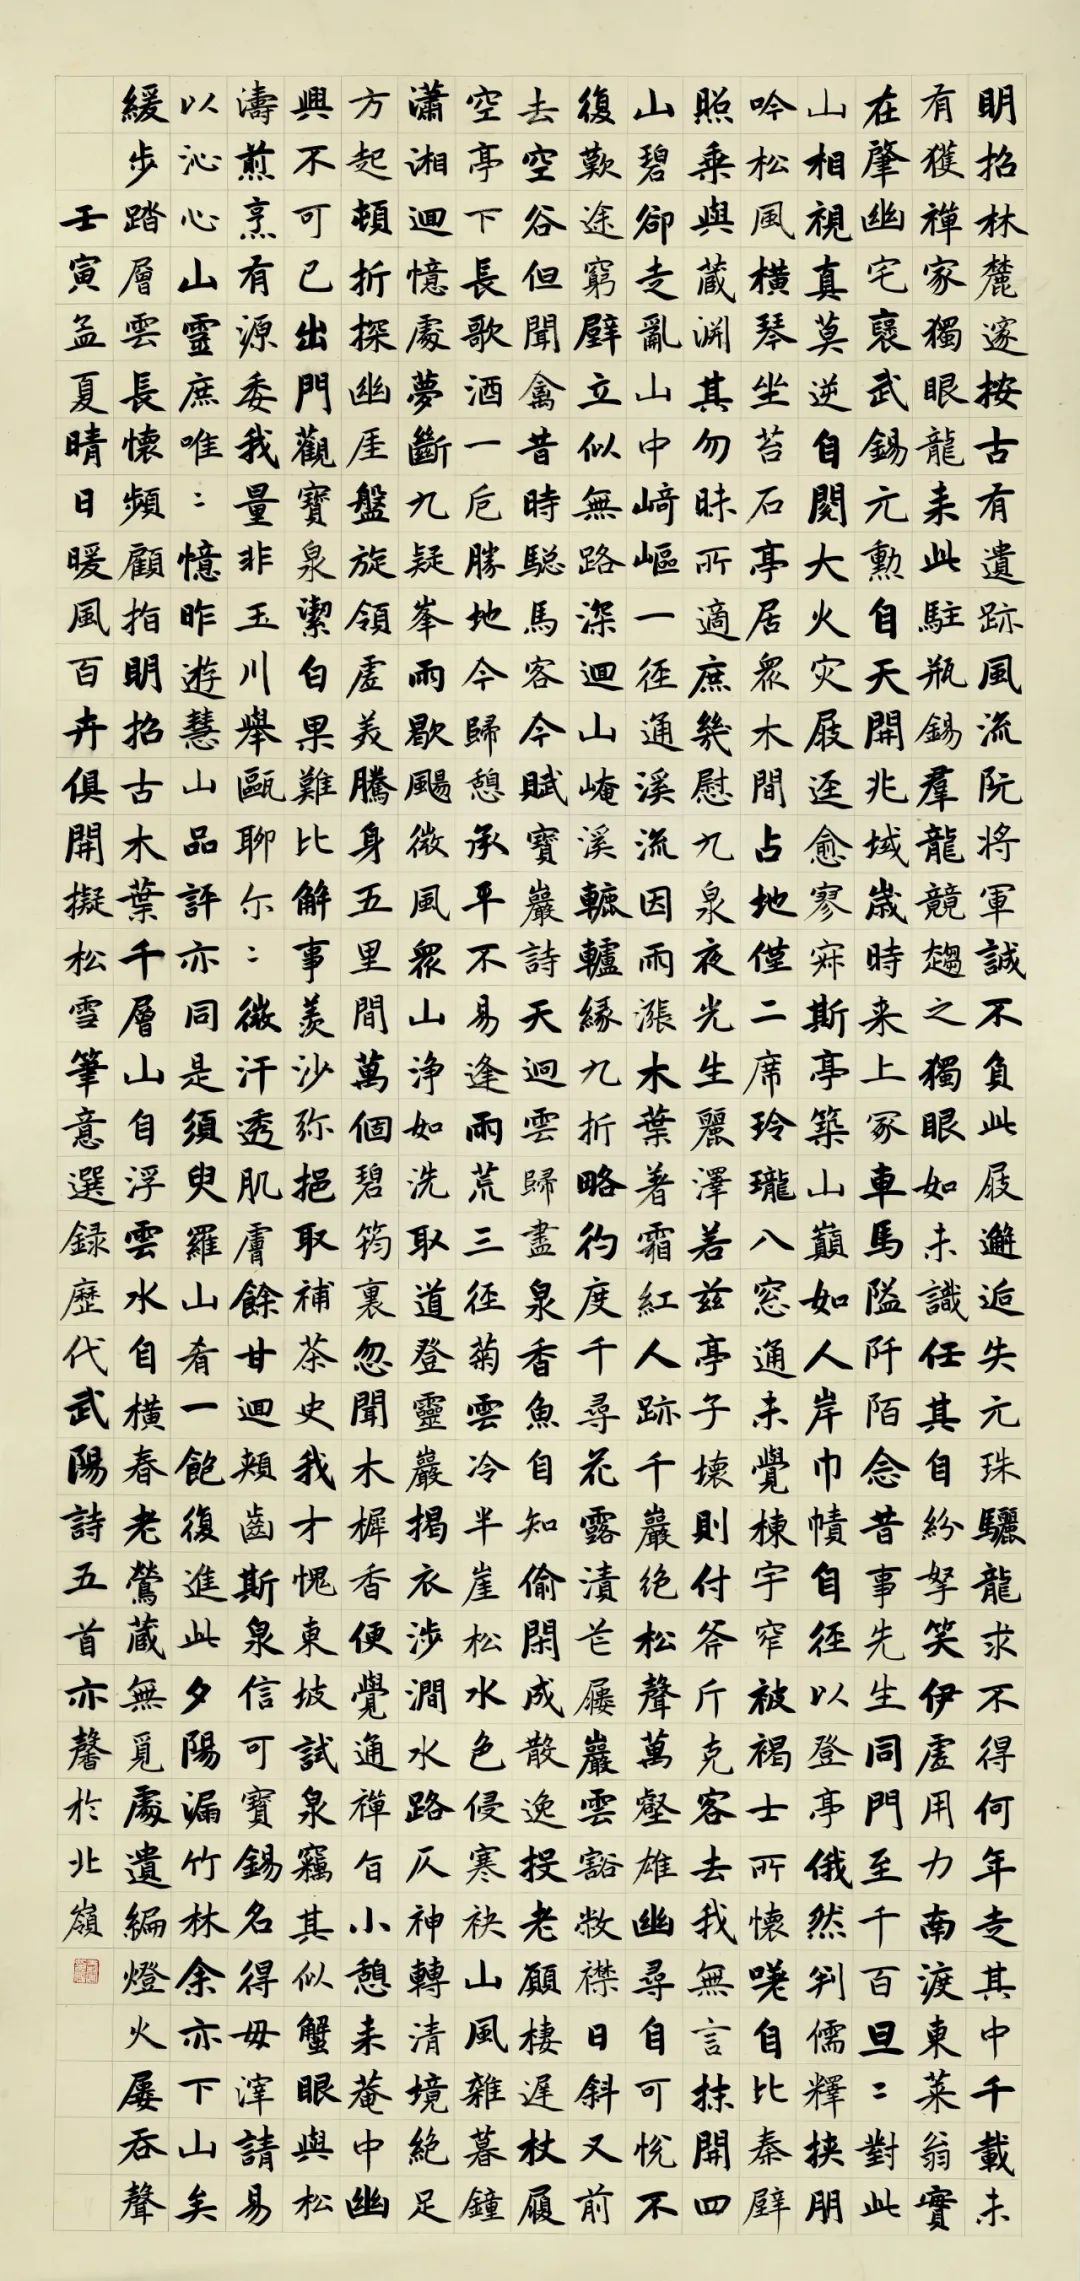 明招林麓邃按古有遺跡風流阮將軍誠不負此屐邂逅失元珠驪龍求不得何年走其中千載未
有獲禪家獨眼龍来此駐瓶錫羣龍競趨之獨眼如未識任其自紛拏笑伊虛用力南渡東萊翁實
在肇幽宅裒武錫元勳自天開兆域歲時来上冢車馬隘阡陌念昔事先生同門至千百旦〻對此
山相視真莫逆自閱大火灾屐逕愈寥寂斯亭築山巔如人岸巾幘自徑以登亭俄然判儒釋挾朋
吟松風橫琴坐苔石亭居眾木間占地僅二席玲瓏八窓通未覺棟宇窄被褐士所懷嘆自比秦璧
照乘與蔵渊其勿昧所適庶幾慰九泉夜光生麗澤若兹亭子壞則付斧斤克客去我無言抹開四
山碧卻走亂山中崎嶇一徑通溪流因雨漲木葉著霜紅人跡千巖绝松聲萬壑雄幽尋自可悅不
復歎途窮壁立似無路深迴山崦溪轆轤緣九折略彴度千尋花露漬芒屨巖雲豁敝襟日斜又前
去空谷但聞禽昔時驄馬客今賦寶巖詩天迥雲歸盡泉香魚自知偷閑成散逸投老願棲遲杖履
空亭下長歌酒一卮勝地今歸憩承平不易逢雨荒三徑菊雲冷半崖松水色侵寒袂山風雜暮鐘
瀟湘迴憶處夢斷九疑峯雨歇颸微風眾山浄如洗取道登靈巖揭衣涉澗水路仄神轉清境絶足
方起頓折探幽厓盤旋領虛美騰身五里間萬個碧筠裏忽聞木樨香便覺通禪旨小憩来菴中幽
興不可已出門觀寶泉潔白果難比解事羨沙弥挹取補茶史我才愧東坡試泉竊其似蟹眼與松
濤煎烹有源委我量非玉川舉甌聊尔〻微汗透肌膚餘甘迴頰齒斯泉信可寶錫名得毋滓請易
以沁心山靈庶唯〻憶昨遊慧山品評亦同是須臾羅山肴一飽復進此夕陽漏竹林余亦下山矣
緩步踏層雲長懷頻顧指明招古木葉千層山自浮雲水自橫春老鶯蔵無覓處遺編燈火屡吞聲
壬寅孟夏晴日暖風百卉俱開擬松雪筆意選録歷代武陽詩五首亦馨於北嶺